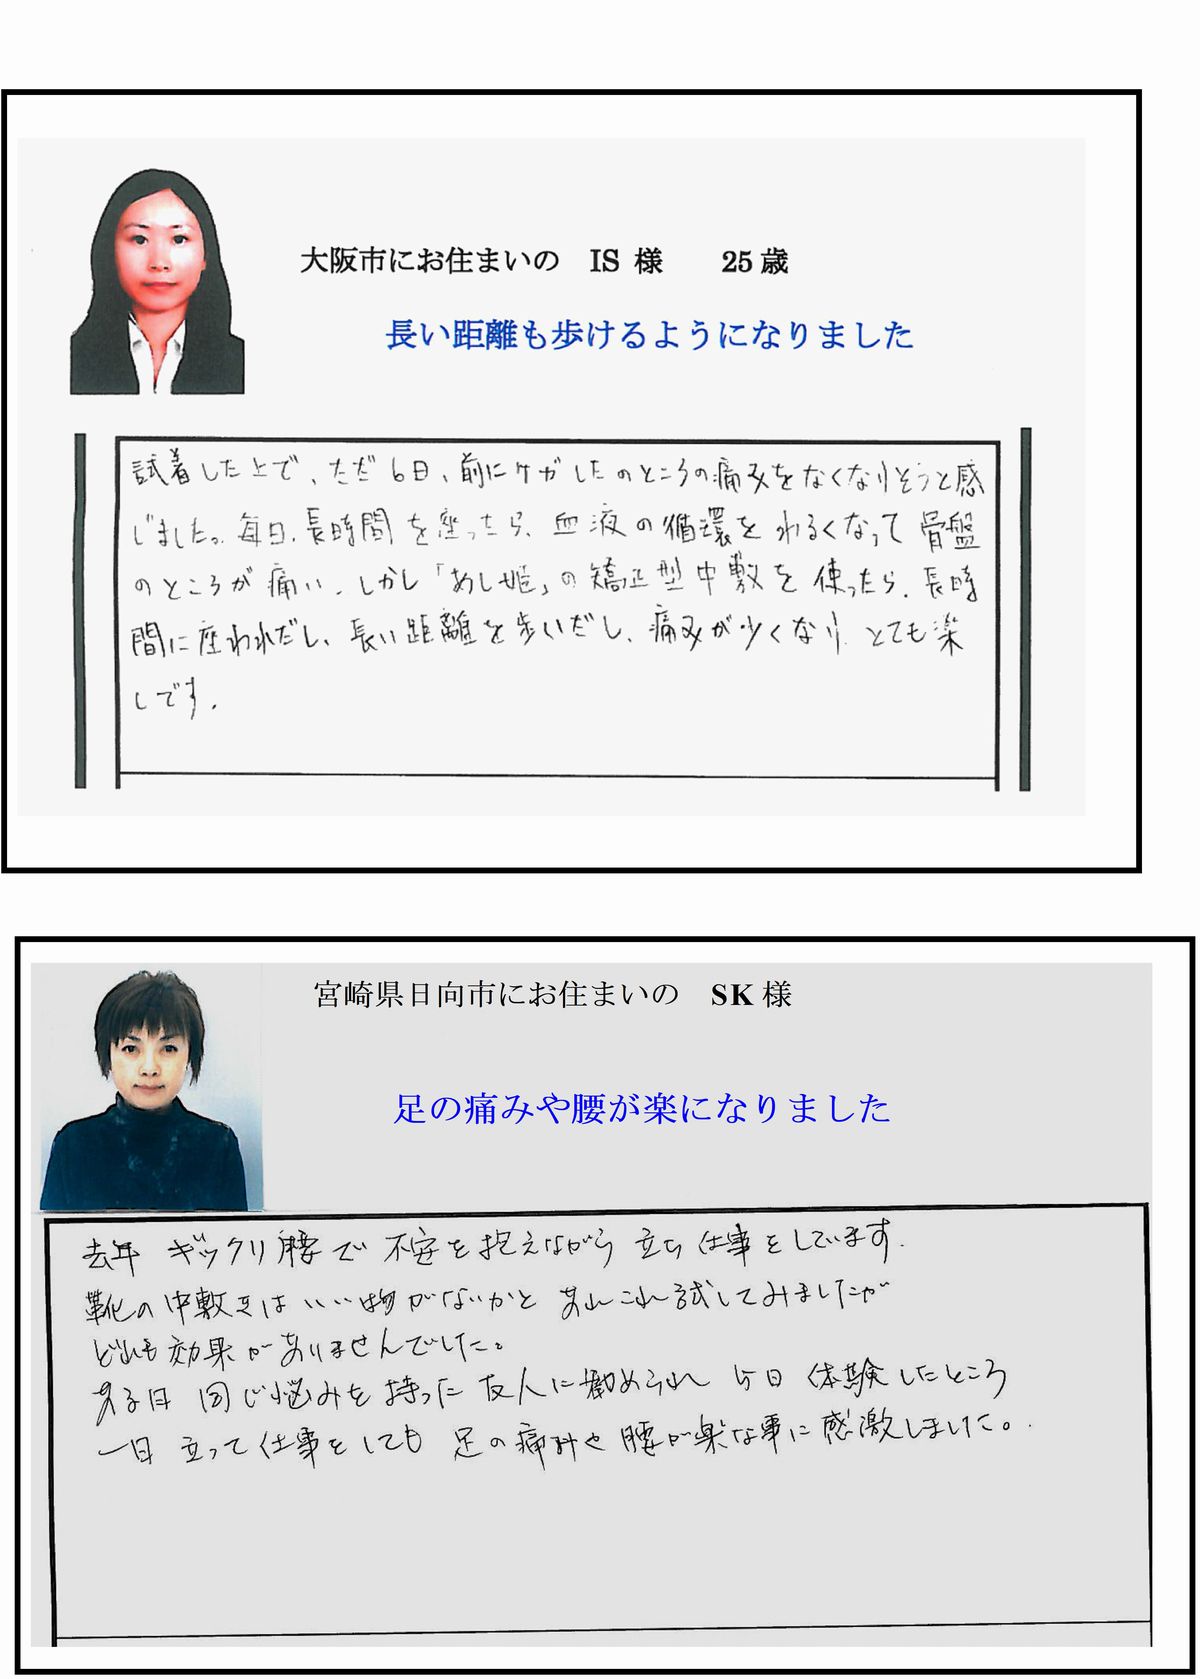 大阪市にお住まいの IS 様 25 歳
長い距離も歩けるようになりました
試着した上で、ただ6日、前にケガしたのところの痛みをなくなりそうと感
じました。毎日、長時間を座ったら、血液の循環をわるくなって骨盤
のところが痛い、しかし「あし姫」の矯正型中敷を使ったら、長時
間に座われだし、長い距離を歩いだし、痛みが少くなり、とても楽
しです。
宮崎県日向市にお住まいの SK 様
足の痛みや腰が楽になりました
去年 ギックリ腰で 不安を抱えながら 立ち仕事をしています.
靴の中敷きは いい物がないかと あれこれ試してみましたが
どれも効果がありませんでした。
ある日 同じ悩みを持った 友人に勧められ 5日 体験したところ
一日 立って仕事をしても 足の痛みや 腰が楽な事に感激しました。